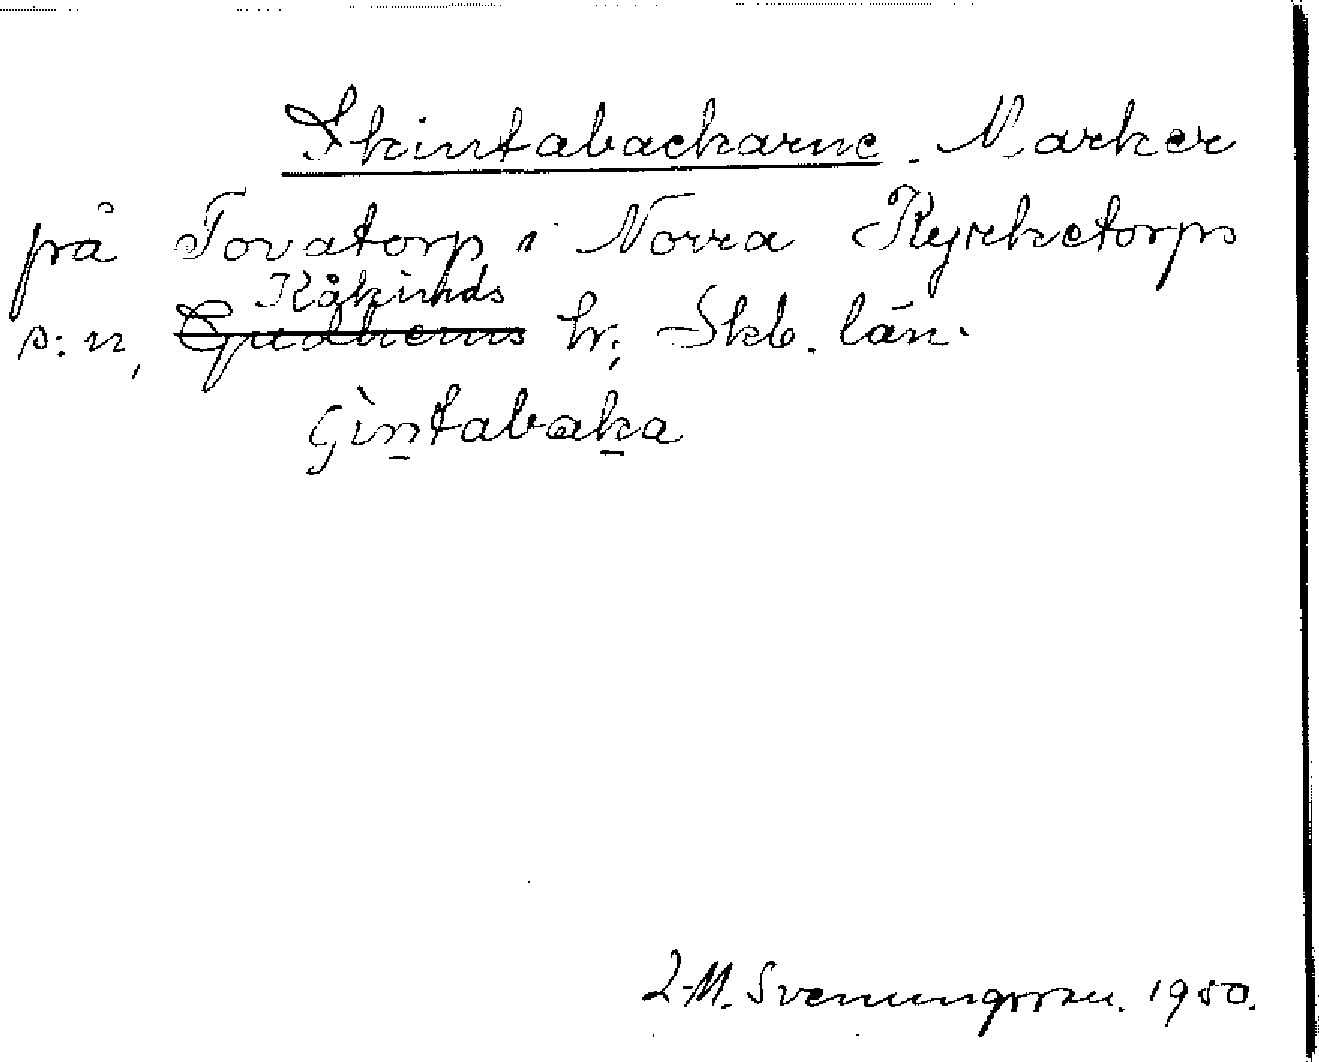 Skintabackarne. Marker
på Tovatorp i Norra Kyrketorps
Kåkinds
s:n, Gudhems hr, Skb. län.
Gìntabaka
L-M. Svenungsson. 1950.